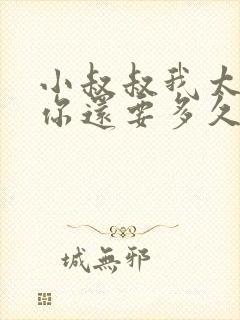 小叔叔我太
你還要多久
城無邪